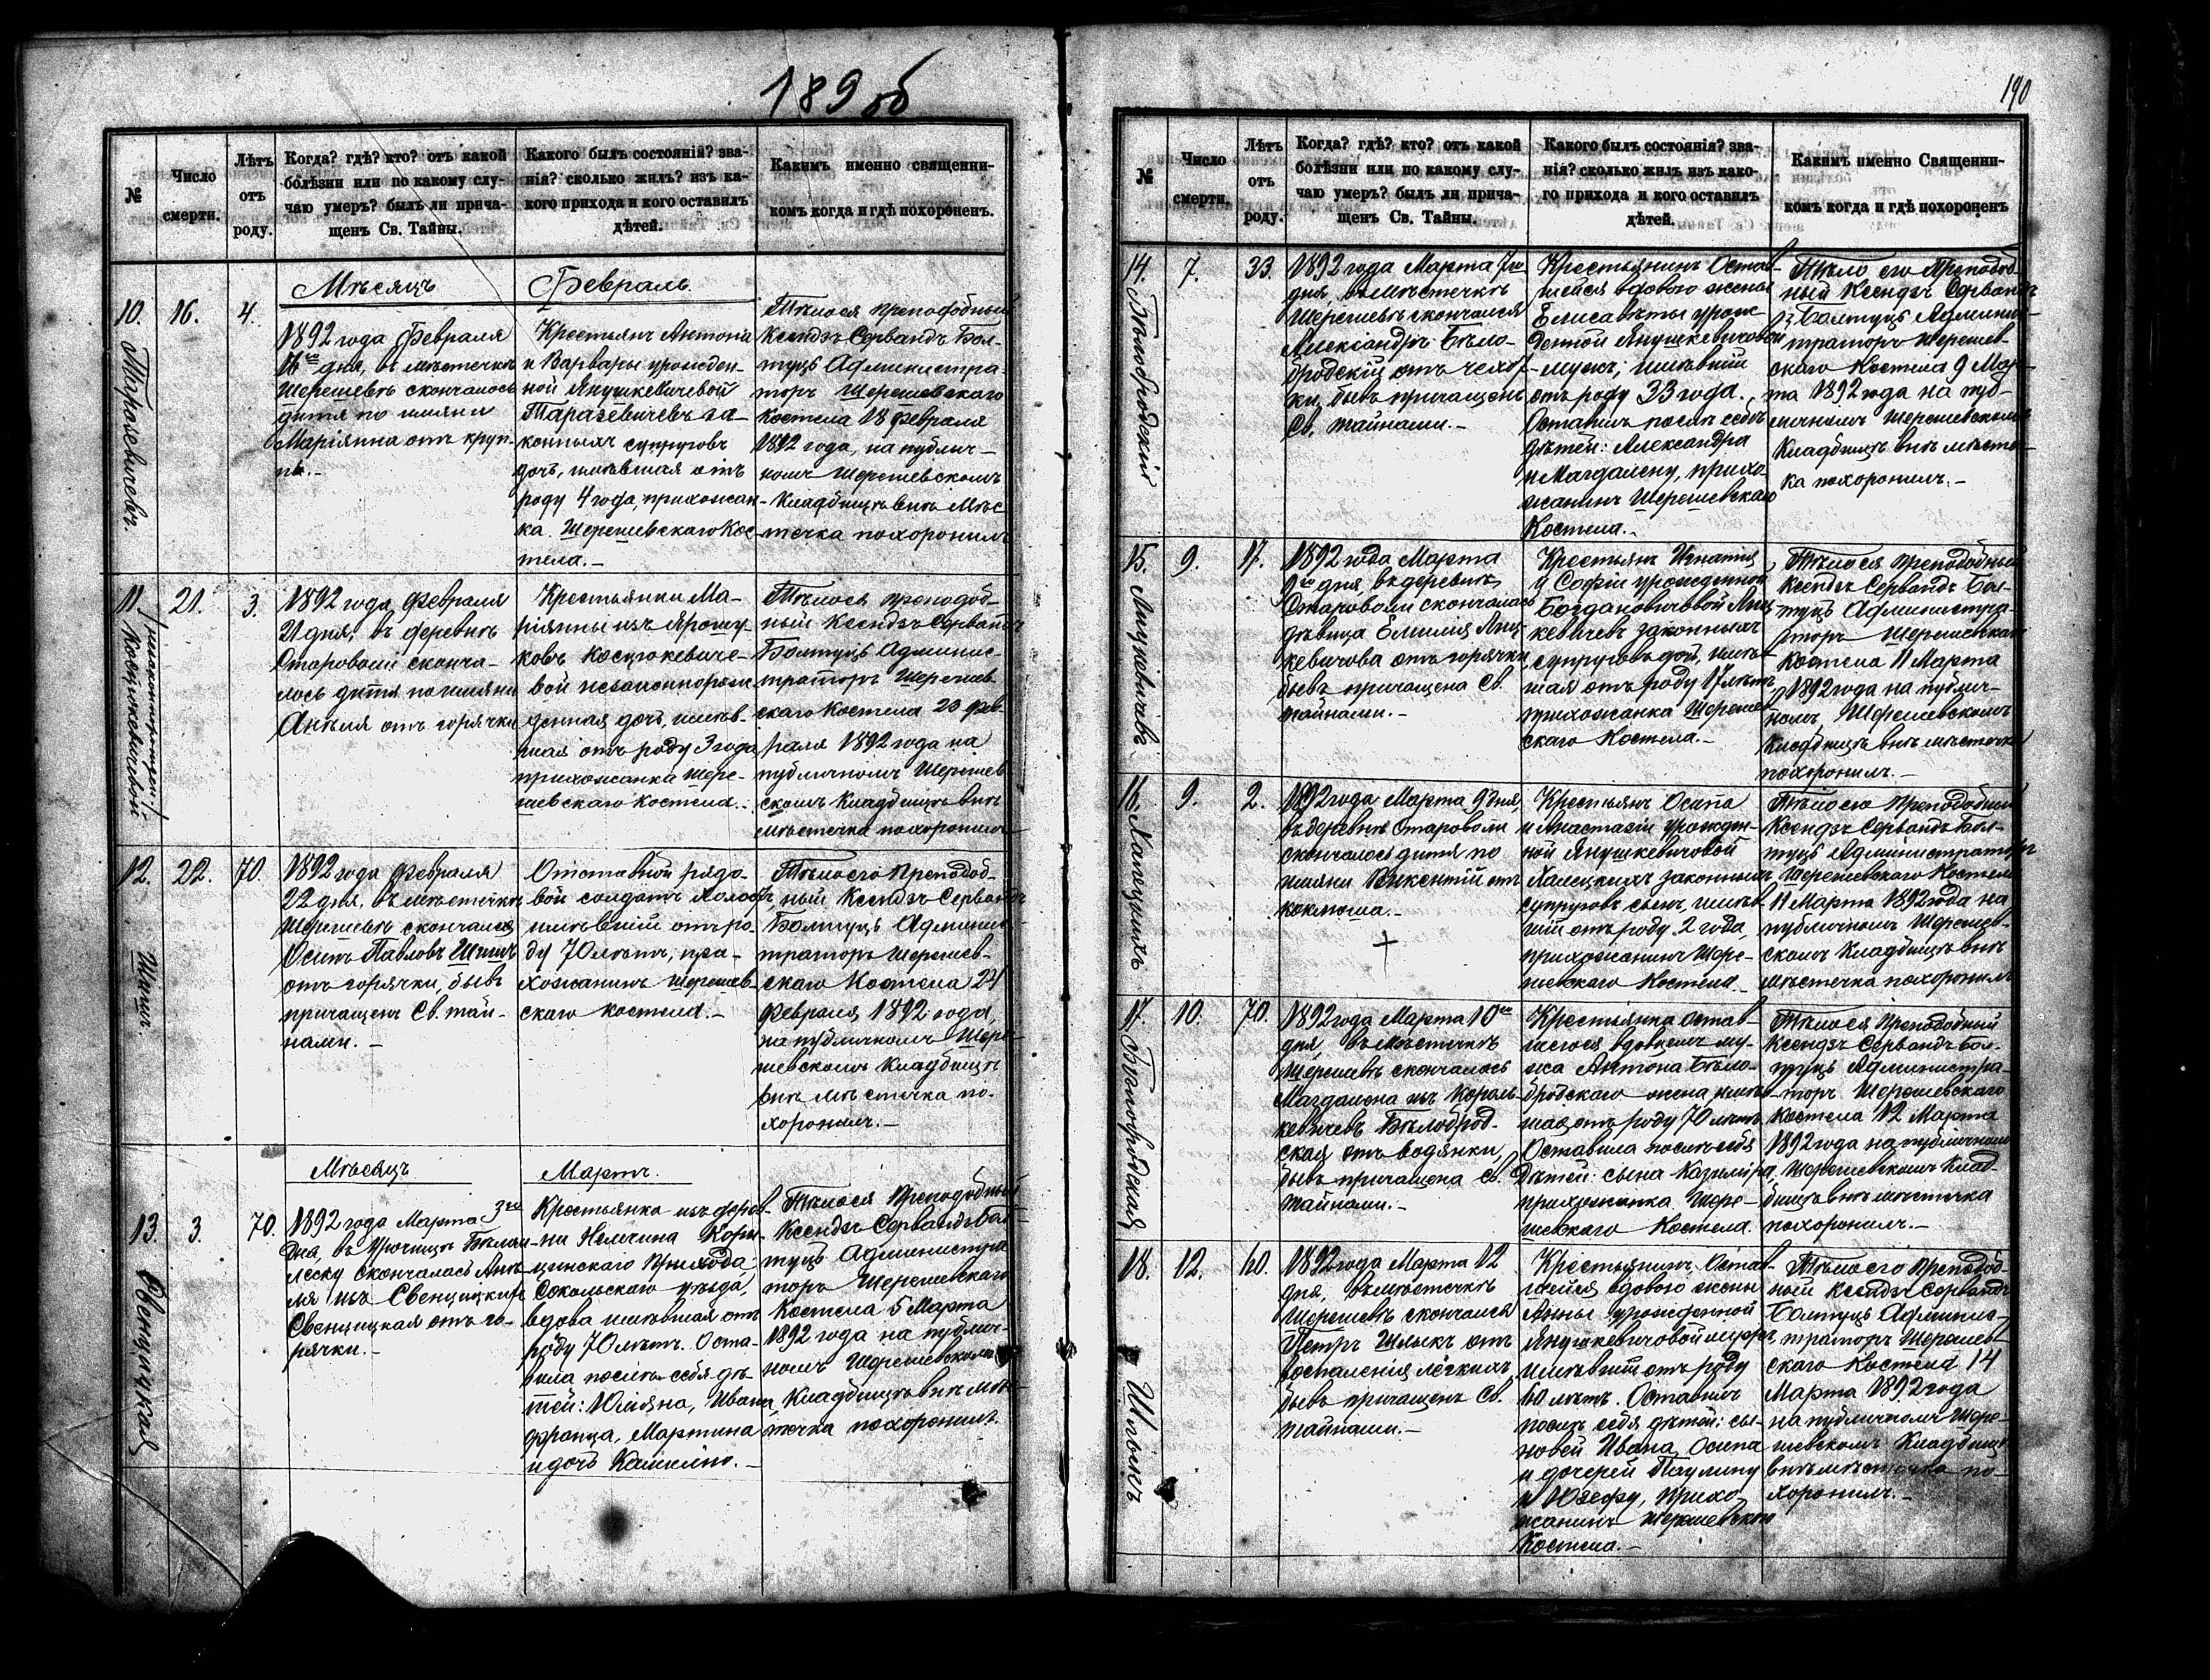 189 об
№
Число смерти.
Лѣтъ отъ роду.
Когда? гдѣ? кто? отъ какой
болѣзни или по какому слу-
чаю умеръ? былъ ли прича-
щенъ Св. Тайны.
Какого былъ состоянія? зва-
нія? сколько жилъ? изъ ка-
кого прихода и кого оставилъ
дѣтей.
Какимъ именно священни-
комъ когда и гдѣ похороненъ.
Мѣсяцъ Февраль.
10.
16.
4.
1892 года Февраля
16го дня, въ мѣстечкѣ
Шерешевѣ скончалось
дитя по имяни
Маріянна отъ круп-
па.-
Крестьянъ Антонія
и Варвары урожден-
ной Янушкевичевой
Таразевичевъ за-
конныхъ супруговъ
дочь, имѣвшая отъ
роду 4 года, прихожан-
ка Шерешевскаго Кос-
тела.-
Тѣло ея преподобный
Ксендзъ Сервандъ Бол-
туць Администра-
торъ Шерешевскаго
Костела 18 февраля
1892 года, на публич-
номъ Шерешевскомъ
Кладбищѣ внѣ Мѣс-
течка похоронилъ
11
21.
3.
Косцюкевичевой
1892 года, Февраля
21 дня, въ деревнѣ
Староволи сконча-
лось дитя по имяни
Анѣля отъ горячки
Крестьянки Ма-
ріянны изъ Ярошу-
ковъ Косцюкевиче-
вой незаконнорож-
денная дочь, имѣв-
шая отъ роду 3 года
прихожанка Шере-
шевскаго костела.-
Тѣло ея преподоб-
ный Ксендзъ Сервандъ
Болтуць Админис-
траторъ Шерешев-
скаго Костела 23 фев-
раля 1892 года на
публичномъ Шерешев
скомъ Кладбищѣ внѣ
мѣстечка похоронилъ
12.
22.
70.
1892 года Февраля
22 дня, въ мѣстечкѣ
Шерешевѣ скончался
Осипъ Павловъ
отъ горячки, бывъ
причащенъ Св. тай-
нами.-
Отставной рядо-
вой солдатъ холостъ,
имѣвшій отъ ро
ду 70 лѣтъ, при-
хожанинъ Шерешев-
скаго костела.-
Тѣло его Преподоб-
ный Ксендзъ Сервандъ
Болтуць Админис-
траторъ Шерешев-
скаго Костела 24
февраля 1892 года,
на публичномъ Шере-
шевскомъ Кладбищѣ
внѣ мѣстечка по-
хоронилъ.-
Мѣсяцъ Мартъ.
13.
3.
70.
Свенцицкая
1892 года Марта 3го
дня, въ Урочищѣ
скончалась Анѣ-
ля изъ Свенцицкихъ
Свенцицкая отъ го-
рячки.-
Крестьянка изъ дерев-
ни
Прихода
Сокольскаго уѣзда,
вдова имѣвшая отъ
роду 70 лѣтъ. Оста-
вила послѣ себя дѣ-
тей: Юліяна, Ивана,
Франца, Мартина
и дочь
Тѣло ея Преподобный
Ксендзъ Сервандъ Бол-
туць Администра-
торъ Шерешевскаго
Костела 5 Марта
1892 года на публич-
номъ Шерешевскомъ
Кладбищѣ внѣ мѣс-
течка похоронилъ.
190
№
Число смерти.
Лѣтъ отъ роду.
Когда? гдѣ? кто? отъ какой
болѣзни или по какому слу-
чаю умеръ? былъ ли прича-
щенъ Св. Тайны.
Какого былъ состоянія? зва-
нія? сколько жилъ изъ како-
го прихода и кого оставилъ
дѣтей.
Какимъ именно Священни-
комъ когда и гдѣ похороненъ
14.
7.
33.
Бѣлобродскій
1892 года Марта 7го
дня, въ мѣстечкѣ
Шерешевѣ скончался
Александръ Бѣло-
бродскій отъ чехот-
ки, бывъ причащенъ
Св. тайнами.-
Крестьянинъ Остав-
шейся вдовою жены
Елисаветы урож-
денной Янушкевичовой
мужъ, имѣвшій
отъ роду 33 года.
Оставилъ послѣ себя
дѣтей: Александра
и Магдалену, прихо-
жанинъ Шерешевскаго
Костела.-
Тѣло его Преподоб-
ный Ксендзъ Сервандъ
Болтуць Админис-
траторъ Шерешев-
скаго Костела 9 Мар-
та 1892 года на пуб-
личномъ Шерешевскомъ
Кладбищѣ внѣ мѣстеч-
ка похоронилъ.-
15.
9.
17.
Мицкевичевъ
1892 года Марта
9го дня, въ деревнѣ
Староволи скончалась
дѣвица Емилія Миц-
кевичова отъ горячки
бывъ причащена Св.
тайнами.-
Крестьянъ Игнатія
и Софіи урожденной
Богдановичовой Миц-
кевичевъ законныхъ
супруговъ дочь, имѣв-
шая отъ роду 17 лѣтъ,
прихожанка Шерешев-
скаго Костела.-
Тѣло ея Преподобный
Ксендзъ Сервандъ Бол-
туць Администра-
торъ Шерешевскаго
Костела 11 Марта
1892 года на публич-
номъ, Шерешевскомъ
Кладбищѣ внѣ мѣстечка
похоронилъ.-
16.
9.
2.
Халецкихъ
1892 года Марта 9 дня,
въ деревнѣ Староволи
скончалось дитя по
имяни Викентій отъ
коклюша.-
Крестьянъ Осипа
и Анастасіи урожден-
ной Янушкевичовой
Халецкихъ законныхъ
супруговъ сынъ, имѣв
шій отъ роду 2 года,
прихожанинъ Шере-
шевскаго Костела.-
Тѣло его Преподобный
Ксендзъ Сервандъ Бол-
туць Администраторъ
Шерешевскаго Костела
11 Марта 1892 года на
публичномъ Шерешев-
скомъ Кладбищѣ внѣ
мѣстечка похоронилъ
17.
10.
70.
Бѣлобродская
1892 года Марта 10го
дня, въ мѣстечкѣ
Шерешевѣ скончалась
Магдалена изъ Король-
кевичевъ Бѣлоброд-
ская отъ водянки,
бывъ причащена Св.
тайнами.-
Крестьянка остав-
шегося вдовцемъ му-
жа Антона Бѣло-
бродскаго жена имѣв-
шая отъ роду 70 лѣтъ
Оставила послѣ себя
Дѣтей: сына Казиміра,
прихожанка Шере-
шевскаго Костела.
Тѣло ея Преподобный
Ксендзъ Сервандъ Бол-
туць Администра-
торъ Шерешевскаго
Костела 12 Марта
1892 года на публичномъ
Шерешевскомъ Клад-
бищѣ внѣ мѣстечка
похоронилъ.-
18.
12.
60.
Шлыкъ
1892 года Марта 12
дня, въ мѣстечкѣ
Шерешевѣ скончался
Петръ Шлыкъ отъ
воспаленія лёгкихъ,
бывъ причащенъ Св.
тайнами.-
Крестьянинъ Остав-
шейся вдовою жены
Анны урожденной
Янушкевичовой мужъ,
имѣвшій отъ роду
60 лѣтъ. Оставилъ
послѣ себя дѣтей: сы-
новей Ивана, Осипа
и дочерей Паулину
и Юзефу, прихо-
жанинъ Шерешевскаго
Костела.-
Тѣло его Преподоб-
ный Ксендзъ Сервандъ
Болтуць Админис-
траторъ Шерешев-
скаго Костела 14
Марта 1892 года
на публичномъ Шере-
шевскомъ Кладбищѣ
внѣ мѣстечка по-
хоронилъ.-